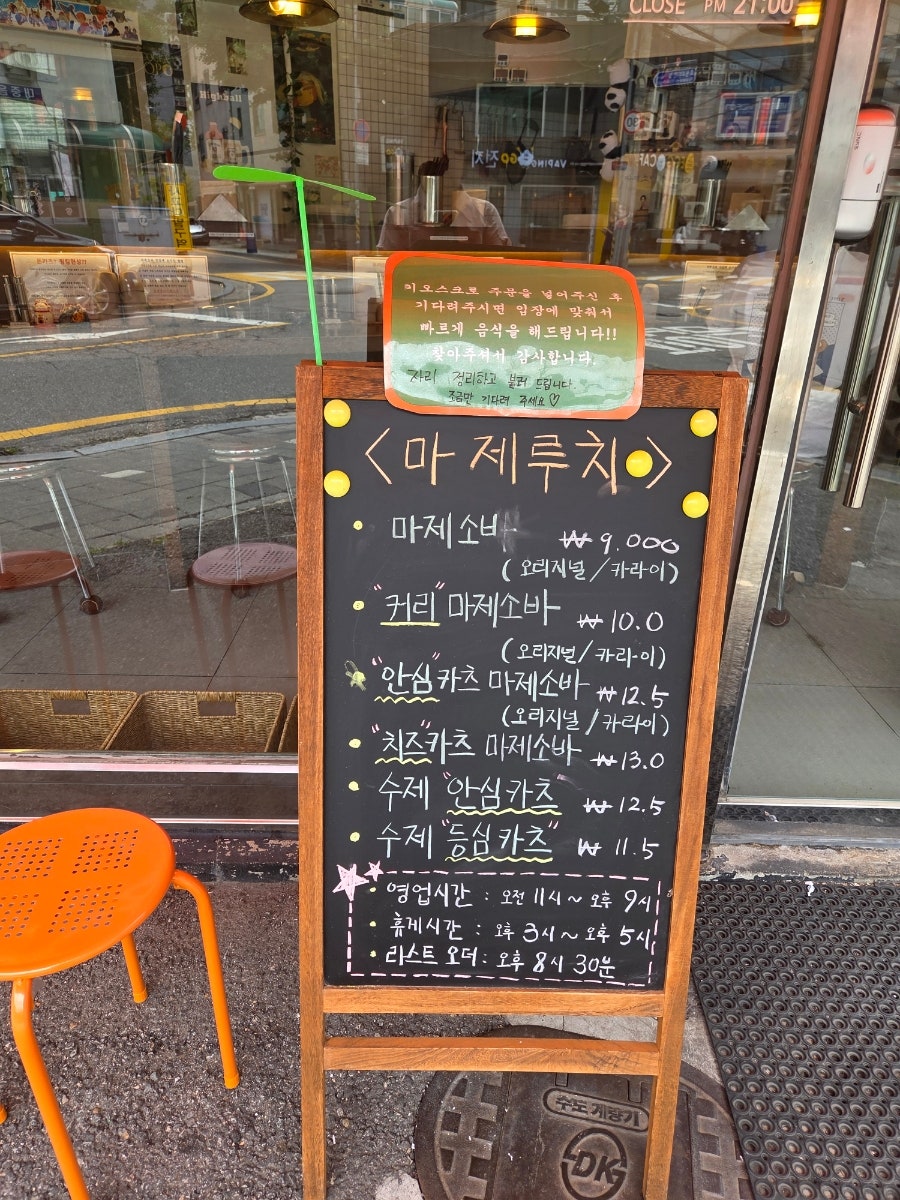 CLOSE PM 21:00
Highball
VAPING
키오스크로 주문을 넣어주신 후
기다려주시면 입장에 맞춰서
빠르게 음식을 해드립니다!!
찾아주셔서 감사합니다.
자리 정리하고 불러 드립니다.
조금만 기다려 주세요♡
<마제루치>
마제소바 ₩9.000
(오리지널/카라이)
"커리"마제소바 ₩10.0
(오리지널/카라이)
"안심"카츠 마제소바 ₩12.5
(오리지널/카라이)
"치즈"카츠 마제소바 ₩13.0
수제 "안심카츠" ₩12.5
수제 "등심카츠" ₩11.5
영업시간 : 오전 11시~오후 9시
휴게시간 : 오후 3시~오후 5시
라스트 오더: 오후 8시 30분
수도계량기
DK